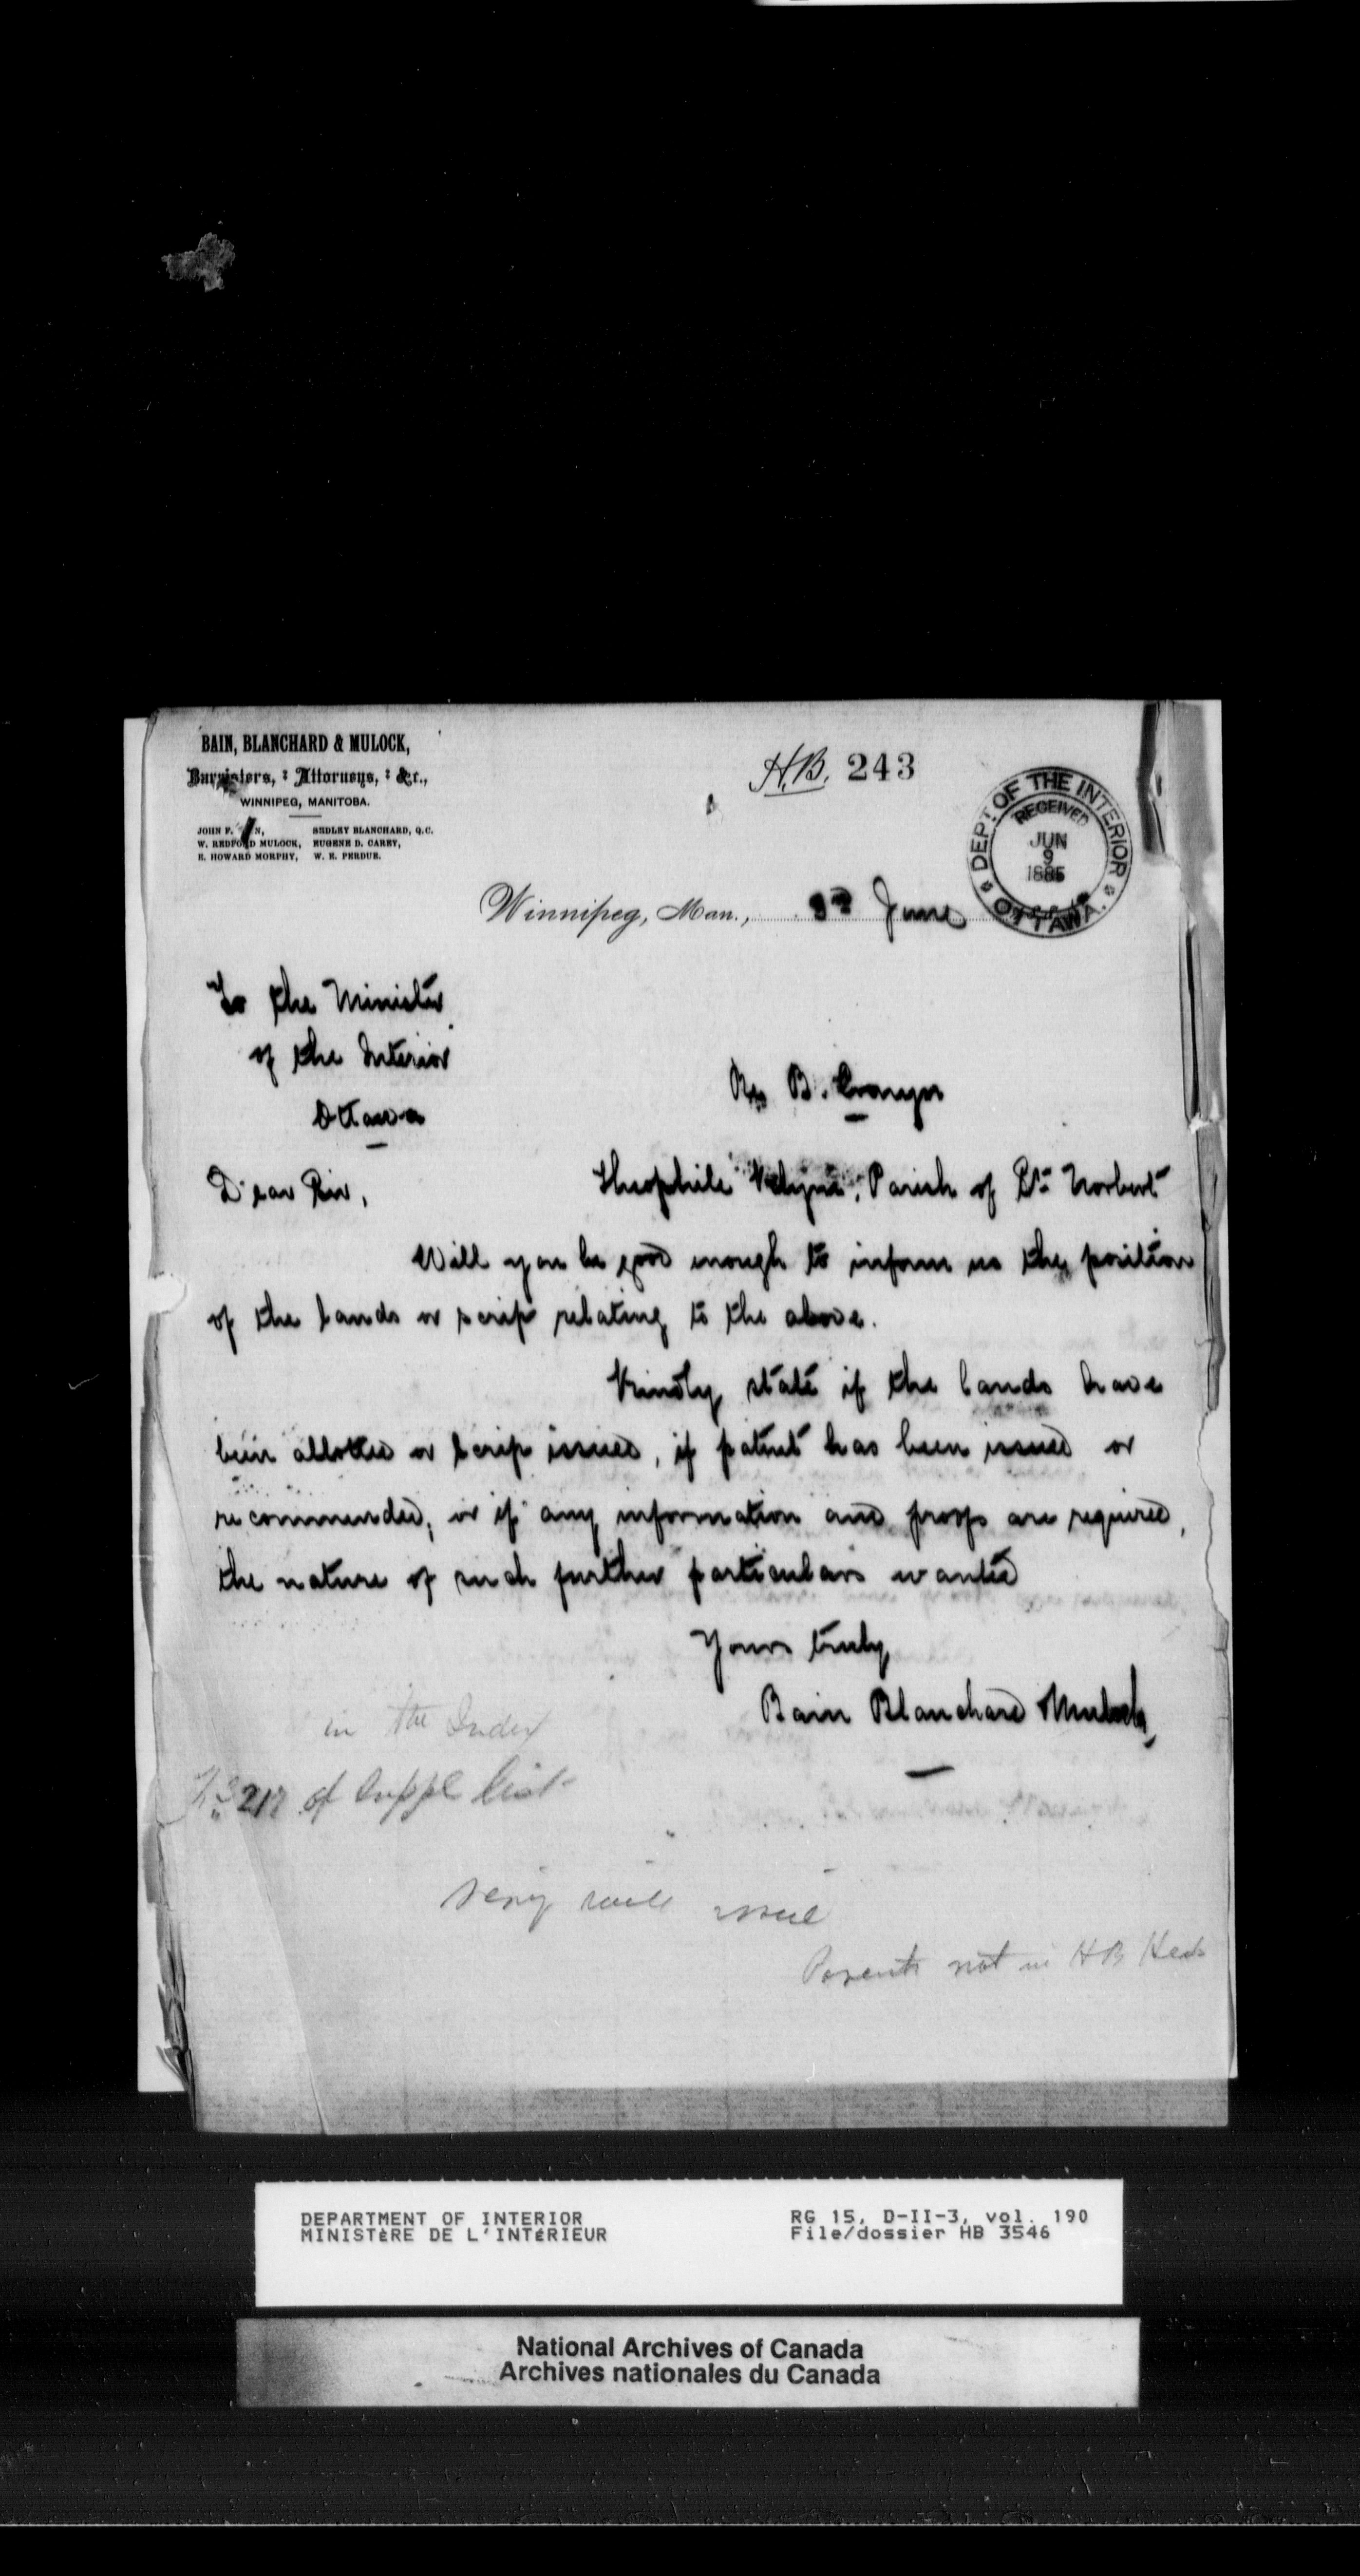 BAIN, BLANCHARD & MULOCK,
Barristers, : Attorneys, : &c.,
WINNIPEG, MANITOBA.
JOHN F. N, SEDLEY BLANCHARD, Q.C.
W. REDFORD MULOCK, EUGENE D. CAREY,
E. HOWARD MORPHY, W. E. PERDUE.
H.B. 243
DEPT. OF THE INTERIOR
RECEIVED
JUN
9
1885
OTTAWA.
Winnipeg, Man., 3rd June
To the Minister
of the Interior
Ottawa
Re B.
Dear Sir, Theophile Parish of St. Norbert
Will you be good enough to inform us the position
of the lands or scrip relating to the above.
Kindly state if the lands have
been allotted or scrip issued, if patent has been issued or
recommended; or if any information and proofs are required,
the nature of such further particulars wanted
Yours truly
Bain Blanchard Mulock
in the Index
No 217 of Suppl list
Scrip will issue
Parents not in HB Heads
DEPARTMENT OF INTERIOR
MINISTÈRE DE L'INTÉRIEUR
RG 15, D-II-3, vol. 190
File/dossier HB 3546
National Archives of Canada
Archives nationales du Canada